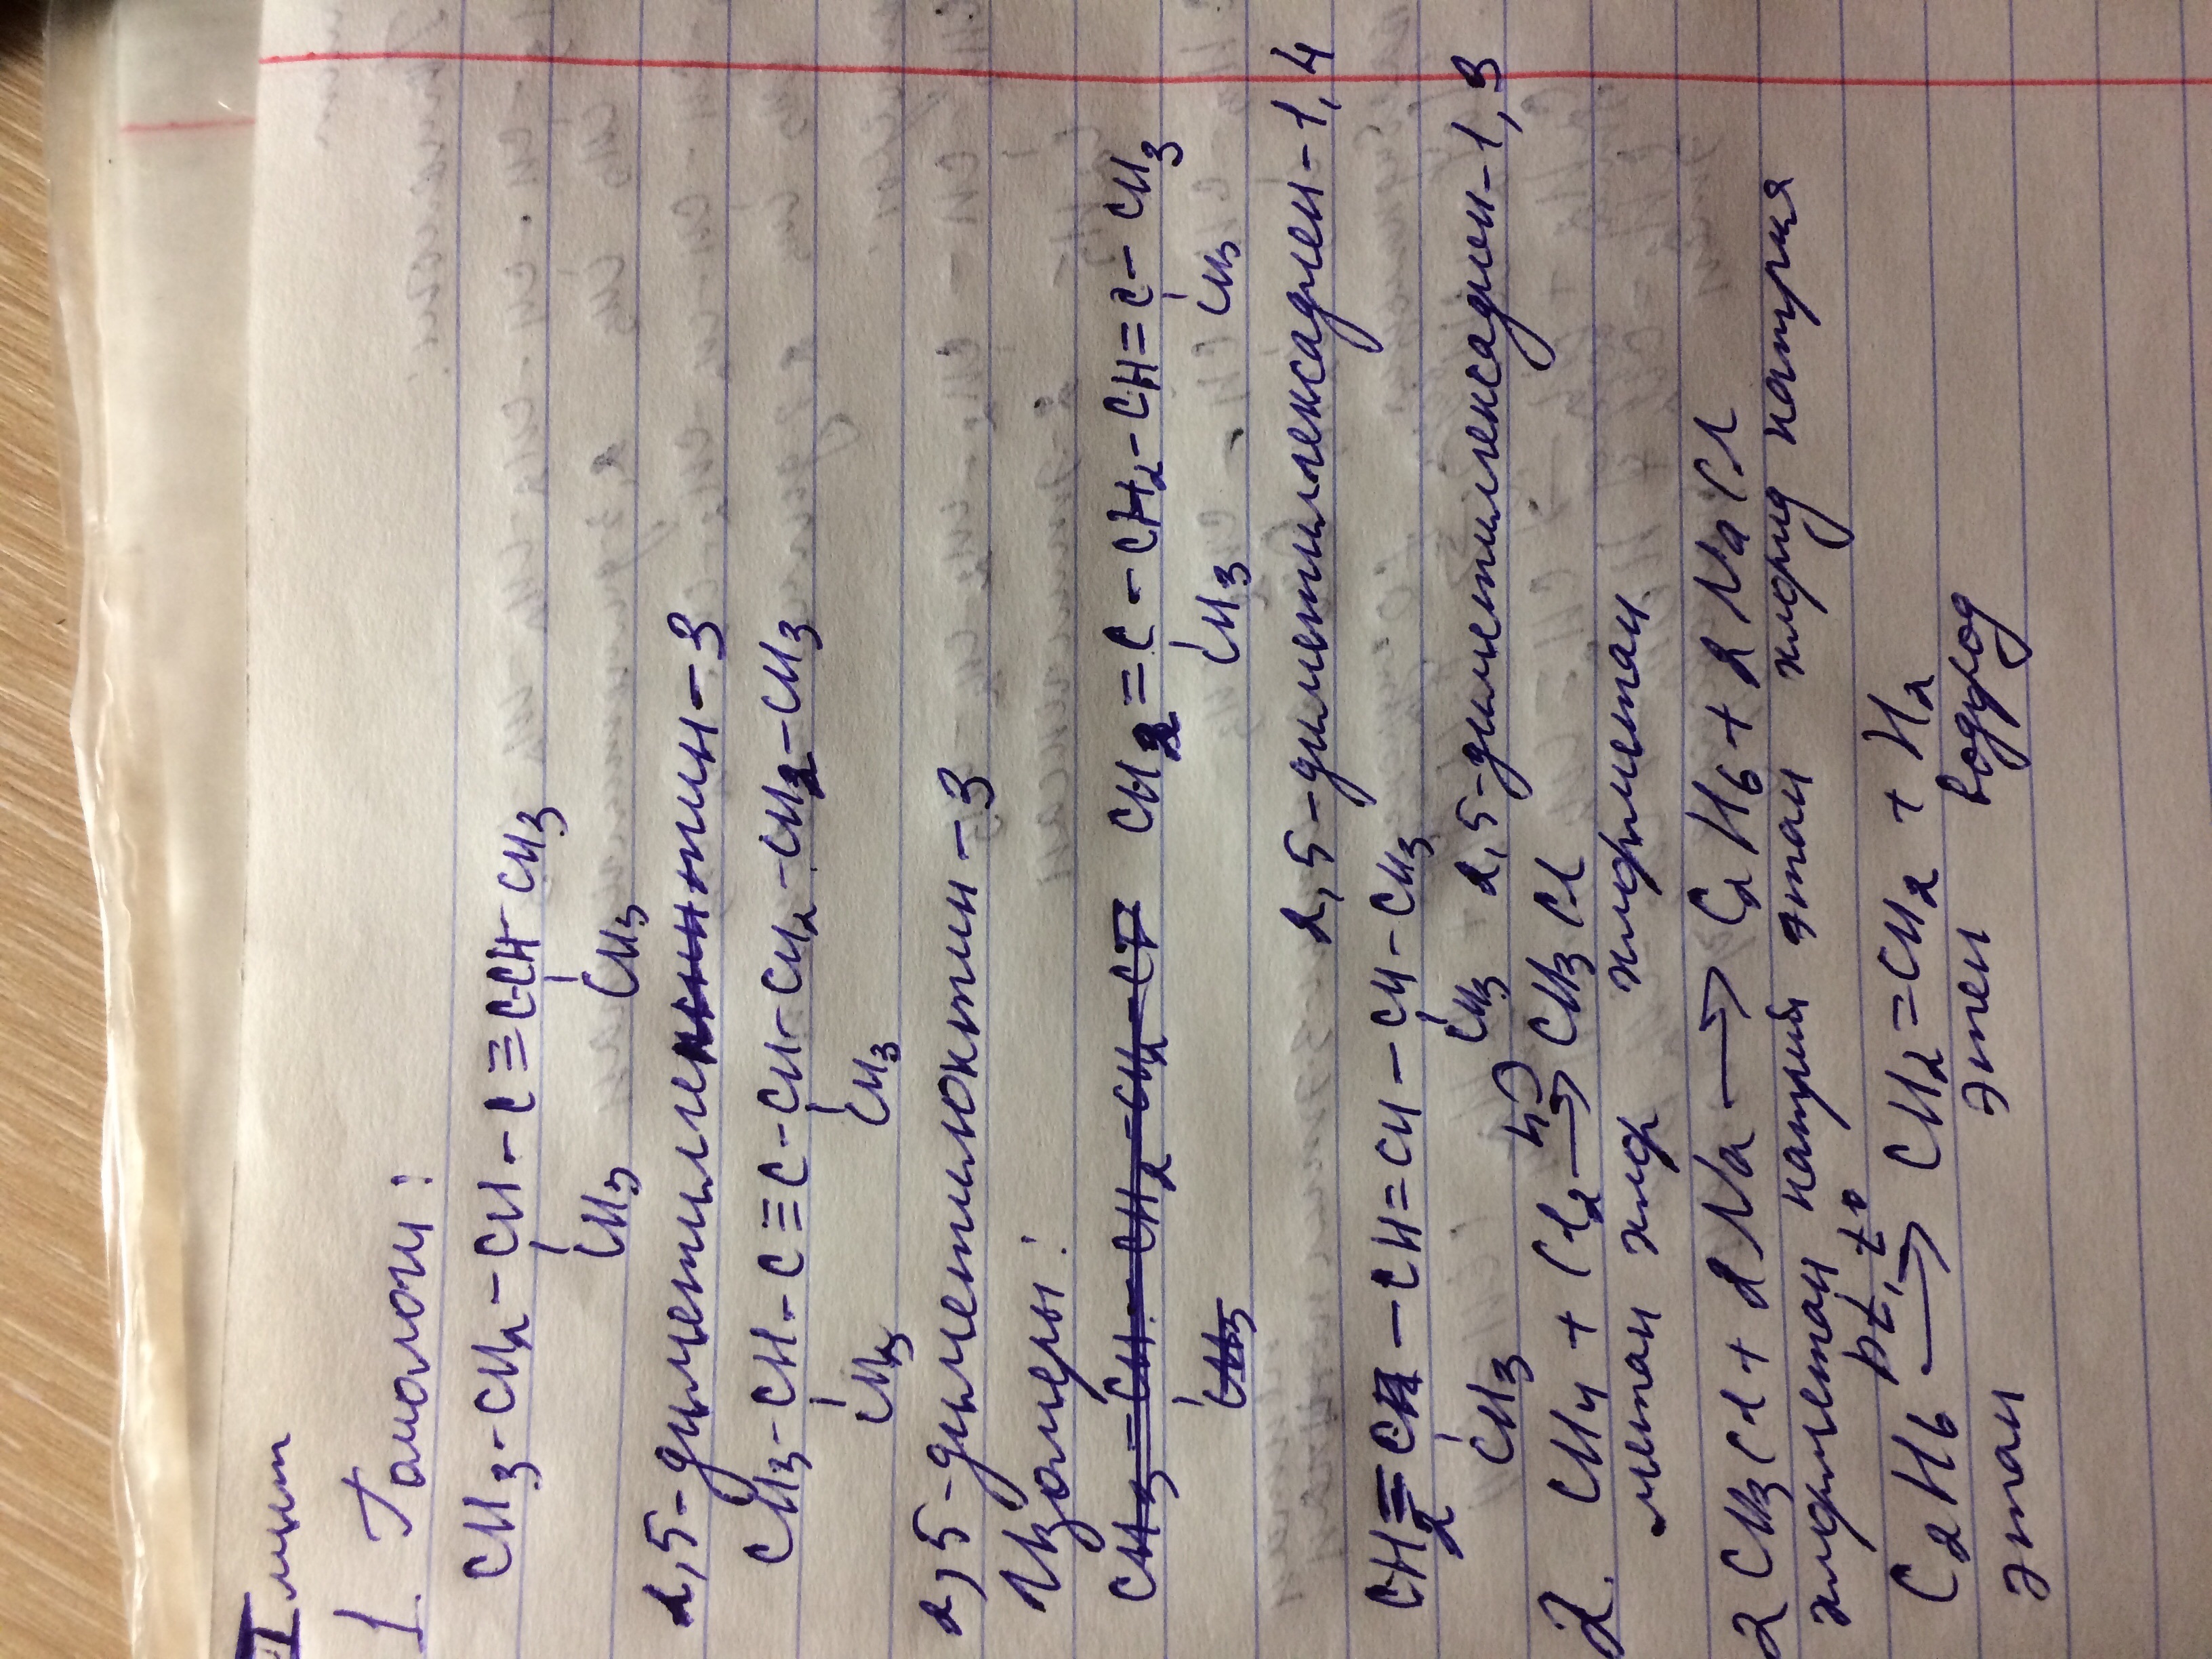 I лист
1. Гомологи:
CH3-CH2-CH-C≡C-CH-CH3
CH3 CH3
2,5-диметилгептин-3
CH3-CH-C≡C-CH-CH2-CH2-CH3
CH3 CH3
2,5-диметилоктин-3
Изомеры:
CH2=C-CH2-CH=C-CH3
CH3 CH3
2,5-диметилгексадиен-1,4
CH2=C-CH=CH-CH-CH3
CH3 CH3 2,5-диметилгексадиен-1,3
2. CH4 + Cl2 hυ→ CH3Cl
метан хлор хлорметан
2CH3Cl + 2Na → C2H6 + 2NaCl
хлорметан натрий этан хлорид натрия
Pt, t°
C2H6 → CH2=CH2 + H2
этан этен водород